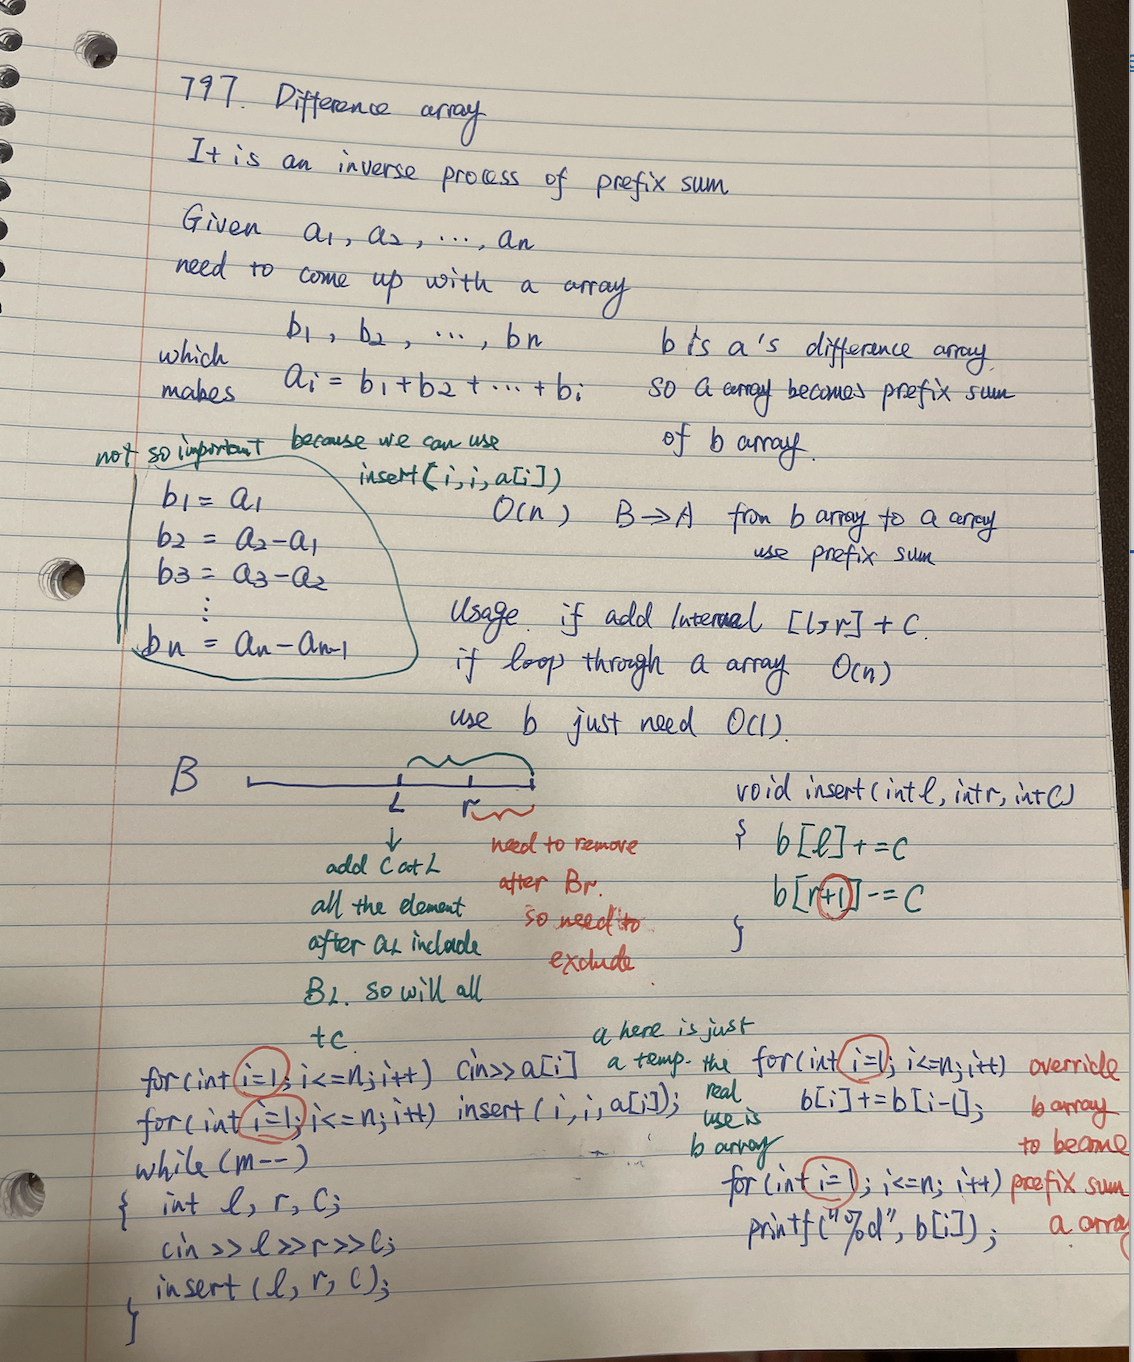 797. Difference array
It is an inverse process of prefix sum
Given a1, a2, ..., an
need to come up with a array
b1, b2, ..., bn
which
makes
ai = b1+b2+...+bi
b is a's difference array.
so a array becomes prefix sum
of b array.
not so important because we can use
insert(i,i,a[i])
b1 = a1
b2 = a2-a1
b3 = a3-a2
⋮
bn = an-an-1
O(n) B→A from b array to a array
use prefix sum
Usage. if add [l,r]+C.
if loop through a array O(n)
use b just need O(1).
B
L r
↓
add C at L
all the element
after aL include
BL. so will all
+c
need to remove
after Br.
so need to
exclude
void insert(int l, int r, int C)
{ b[l]+=C
b[r+1]-=C
}
for(int i=1; i<=n; i++) cin>>a[i]
for(int i=1; i<=n; i++) insert(i,i,a[i]);
while(m--)
{ int l, r, C;
cin>>l>>r>>C;
insert(l, r, C);
}
a here is just
a temp. the
real
use is
b array
for(int i=1; i<=n; i++)
b[i]+=b[i-1];
for(int i=1; i<=n; i++)
printf("%d", b[i]);
override
b array
to become
prefix sum
a array